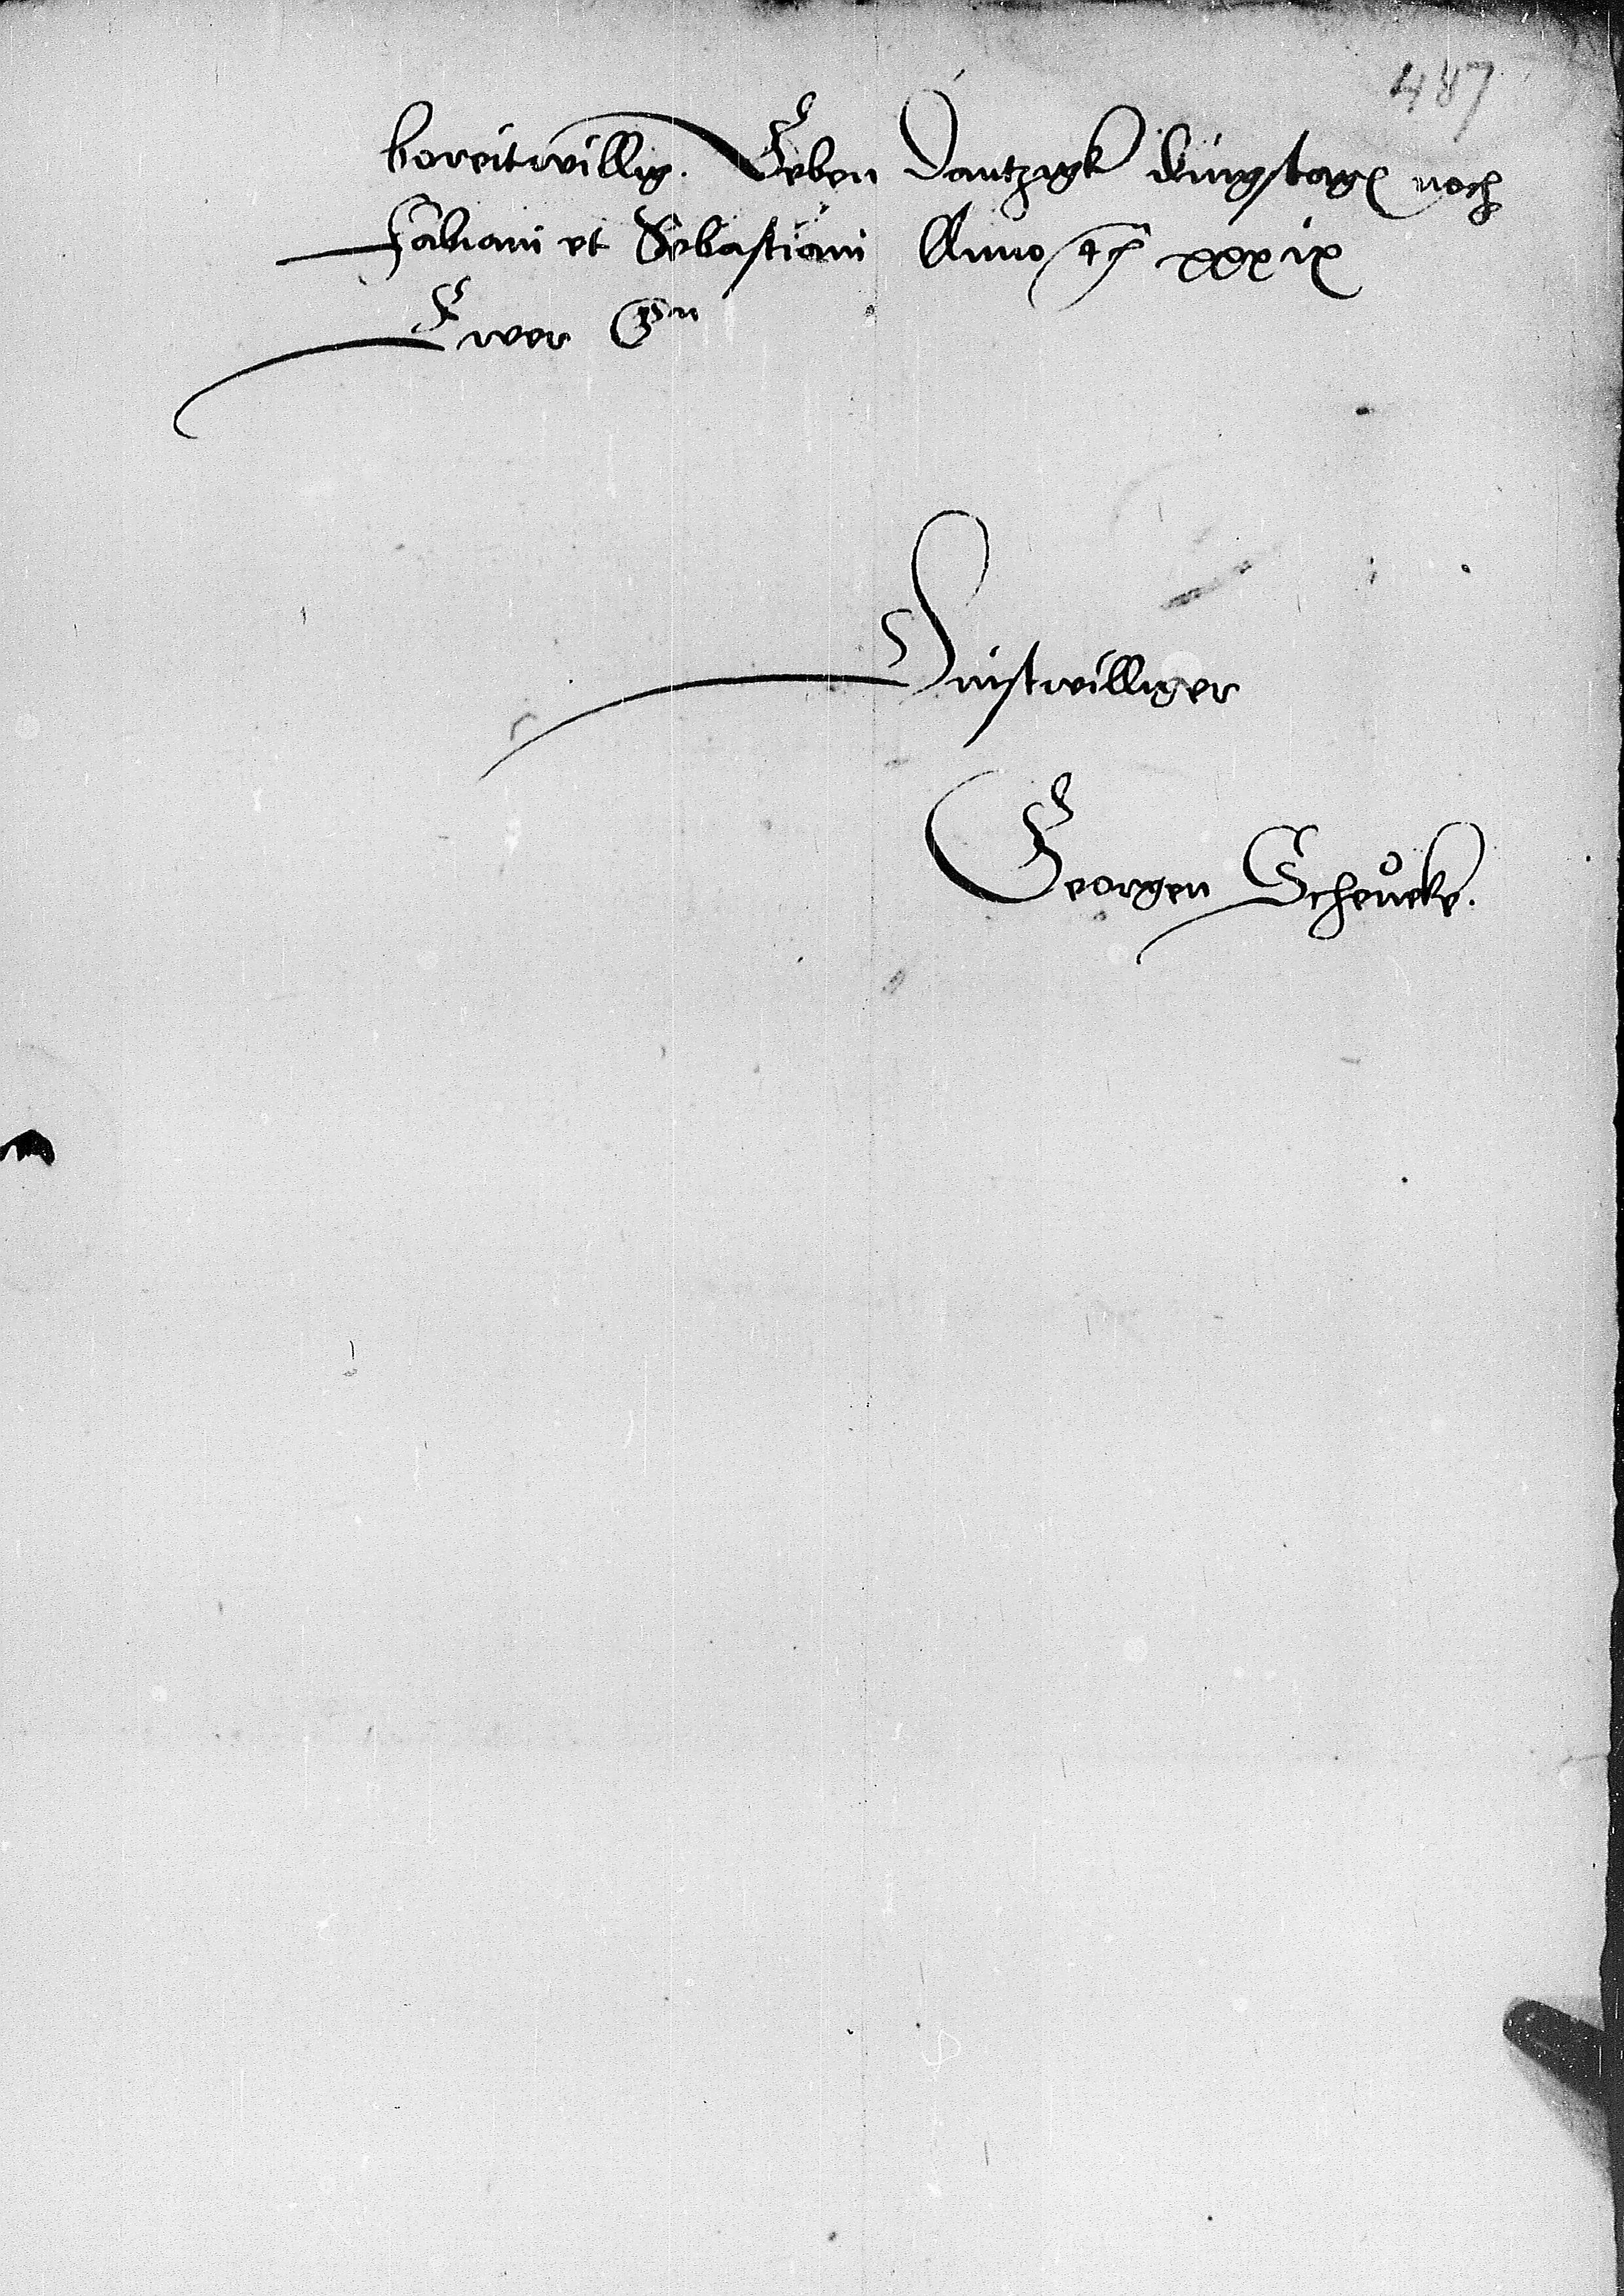 487
bereitwillig. Geben Dantzigk dingstags noch
Fabiani et Sebastiani Anno etc xxxix
Ewer Gn
Dinstwilliger
Georgen Scheweke.